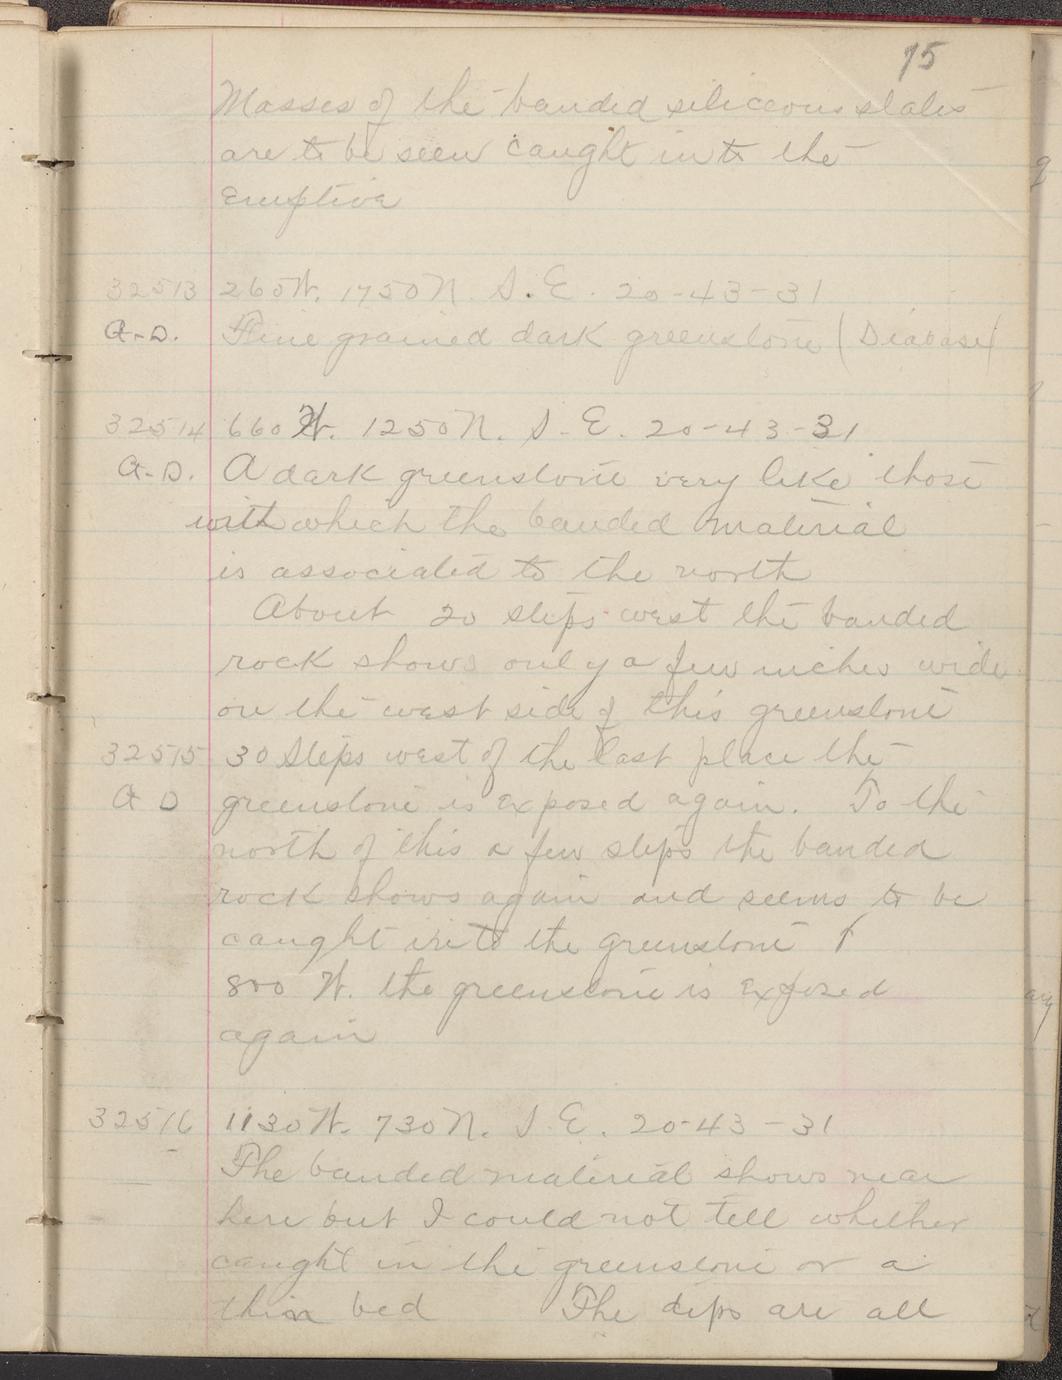 75
Masses of the banded siliceous slates
are to be seen caught into the
eruptive
32513 260 W. 1750 N. S.E. 20-43-31
A-D. Fine grained dark greenstone (Diabase)
32514 660 W. 1250 N. S.E. 20-43-31
A-D. A dark greenstone very like those
with which the banded material
is associated to the north
About 20 steps west the banded
rock shows only a few inches wide
on the west side of this greenstone
32515 30 Steps west of the last place the
A D greenstone is exposed again. To the
north of this a few steps the banded
rock shows again and seems to be
caught into the greenstone
800 W. the greenstone is exposed
again
32516 1130 W. 730 N. S.E. 20-43-31
The banded material shows near
here but I could not tell whether
caught in the greenstone or a
thin bed The dips are all